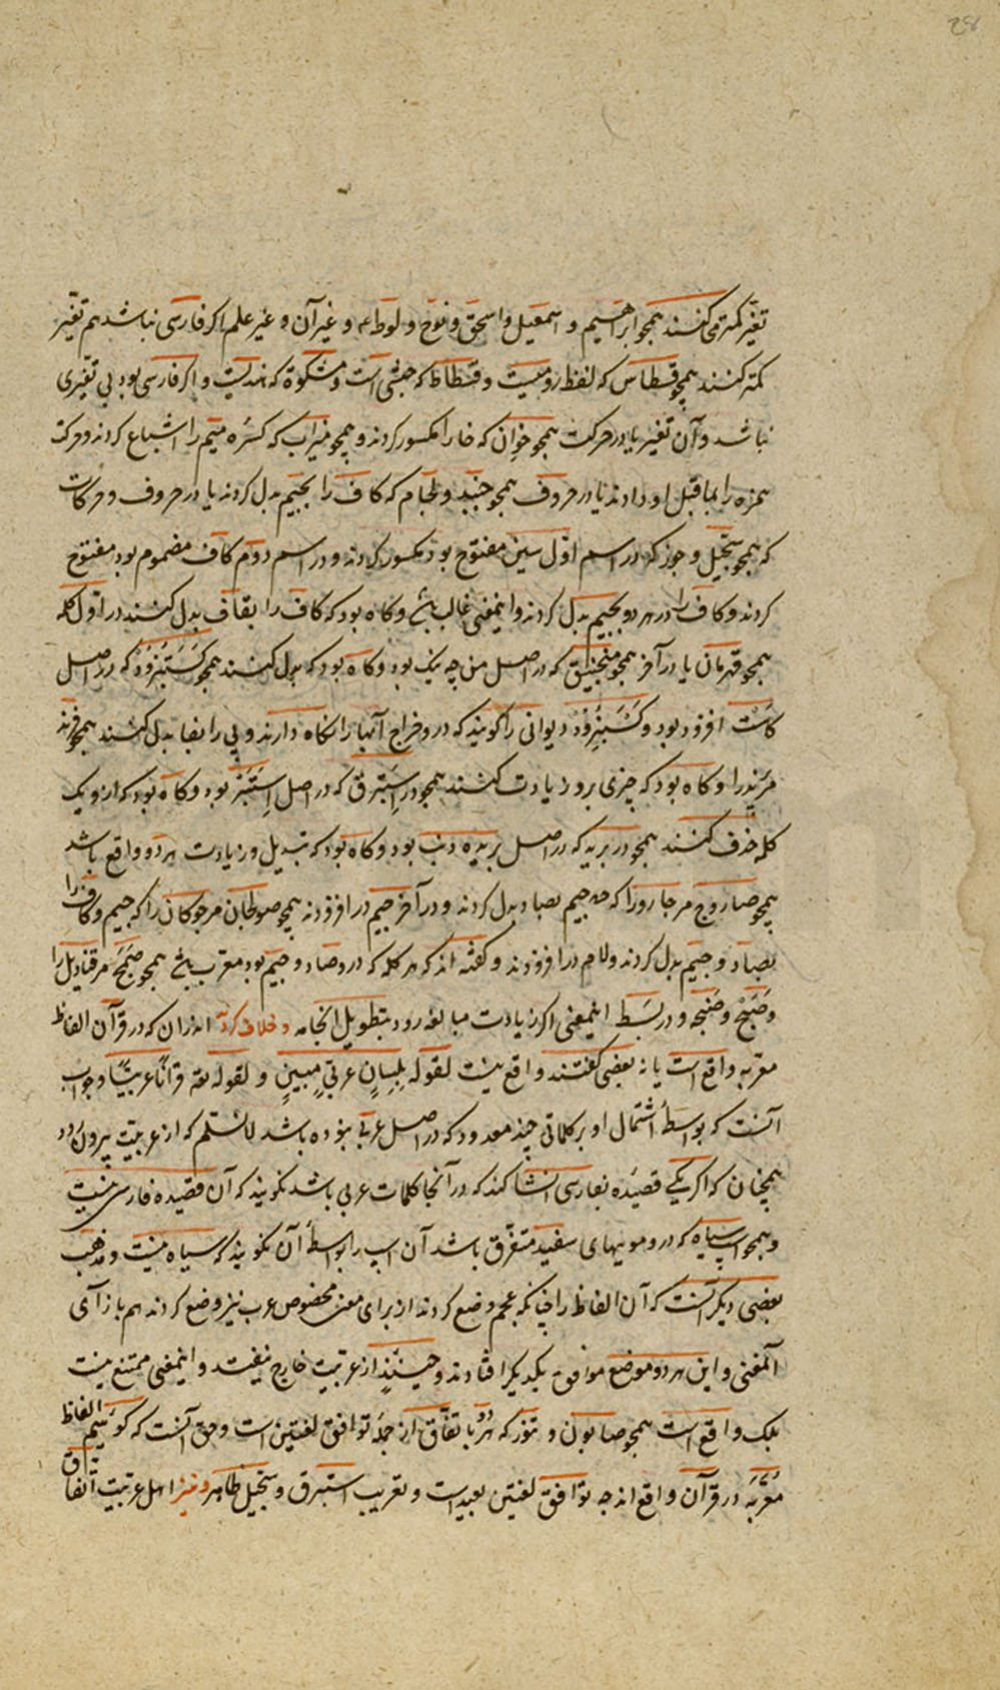 تغیر کمتر می‌کنند همچو ابراهیم و اسمعیل و اسحق و نوح و لوط و غیر آن و غیر علم اکر فارسی نباشد هم تغیر
کمتر کنند همچو قسطاس که لفظ رومیست و قسطاط که حبشی است و مشکوة که هندیست و اکر فارسی بود بی تغیری
نباشد و آن تغیر یا در حرکت همچو خوان که خا را مکسور کردند و همچو میزاب که کسره میم را اشباع کردند و حرکت
همزه را بما قبل او دادند یا در حروف همچو جنبد و لجام که کاف را بجیم بدل کردند یا در حروف و حرکات
که همچو سجیل و جوز که در اسم اول سین مفتوح بود مکسور کردند و در اسم دوم کاف مضموم بود مفتوح
کردند و کاف را در هر دو بجیم بدل کردند و اینمعنی غالب باشد و کاه بود که کاف را بقاف بدل کنند در اول کلمه
همچو قهرمان یا در آخر همچو منجنیق که در اصل من چه نیک بود و کاه بود که بدل کنند همچو کستبزود که در اصل
کاست افزود بود و کستبزود دیوانی را کویند که درو خراج آبها را نکاه دارند و پی را بفا بدل کنند همچو فرند
مر پرند را و کاه بود که چیزی برو زیادت کنند همچو در استبرق که در اصل استبر بود و کاه بود که ازو یک
کلمه حذف کنند همچو در بریه که در اصل بریده دنب بود و کاه بود که تبدیل و زیادت هر دو واقع باشد
همچو صاروج مر جاروزا که جیم بصاد بدل کردند و در آخر جیم در افزودند همچو صولجان مر جوکان را که جیم و کاف را
بصاد و جیم بدل کردند و لام در افزودند و کفته اند که هر کلمه که درو صاد و جیم بود معرب باشد همچو صمج مر قنادیل را
و صنج و صنجه و در بسط اینمعنی اکر زیادت مبالغه رود بتطویل انجامد و خلاف کرده اند در آن که در قرآن الفاظ
معربه واقع است یا نه بعضی کفتند واقع نیست لقوله بلسان عربی مبین و لقوله تعه قرانا عربیا و جواب
آنست که بواسطه اشتمال او بر کلماتی چند معدود که در اصل عربی نبوده باشد لانسلم که از عربیت بیرون رود
همچنان که اکر یکی قصیده بفارسی انشا کند که در آنجا کلمات عربی باشد نکویند که آن قصیده فارسی نیست
و همچو اسپ سیاه که درو مویهای سفید متفرق باشد آن اسپ را بواسطه آن نکویند که سیاه نیست و مذهب
بعضی دیکر آنست که آن الفاظ را چنانکه عجم وضع کردند از برای معنی مخصوص عرب نیز وضع کردند هم بازآی
آنمعنی و این هر دو موضع موافق یکدیکر افتادند و حینئذ از عربیت خارج نیفتد و اینمعنی ممتنع نیست
بلک واقع است همچو صابون و تنور که هر دو باتفاق از جمله توافق لغتین است و حق آنست که کوییم الفاظ
معربه در قرآن واقع اند چه توافق لغتین بعید است و تعریب استبرق و سجیل ظاهر و نیز اهل عربیت اتفاق